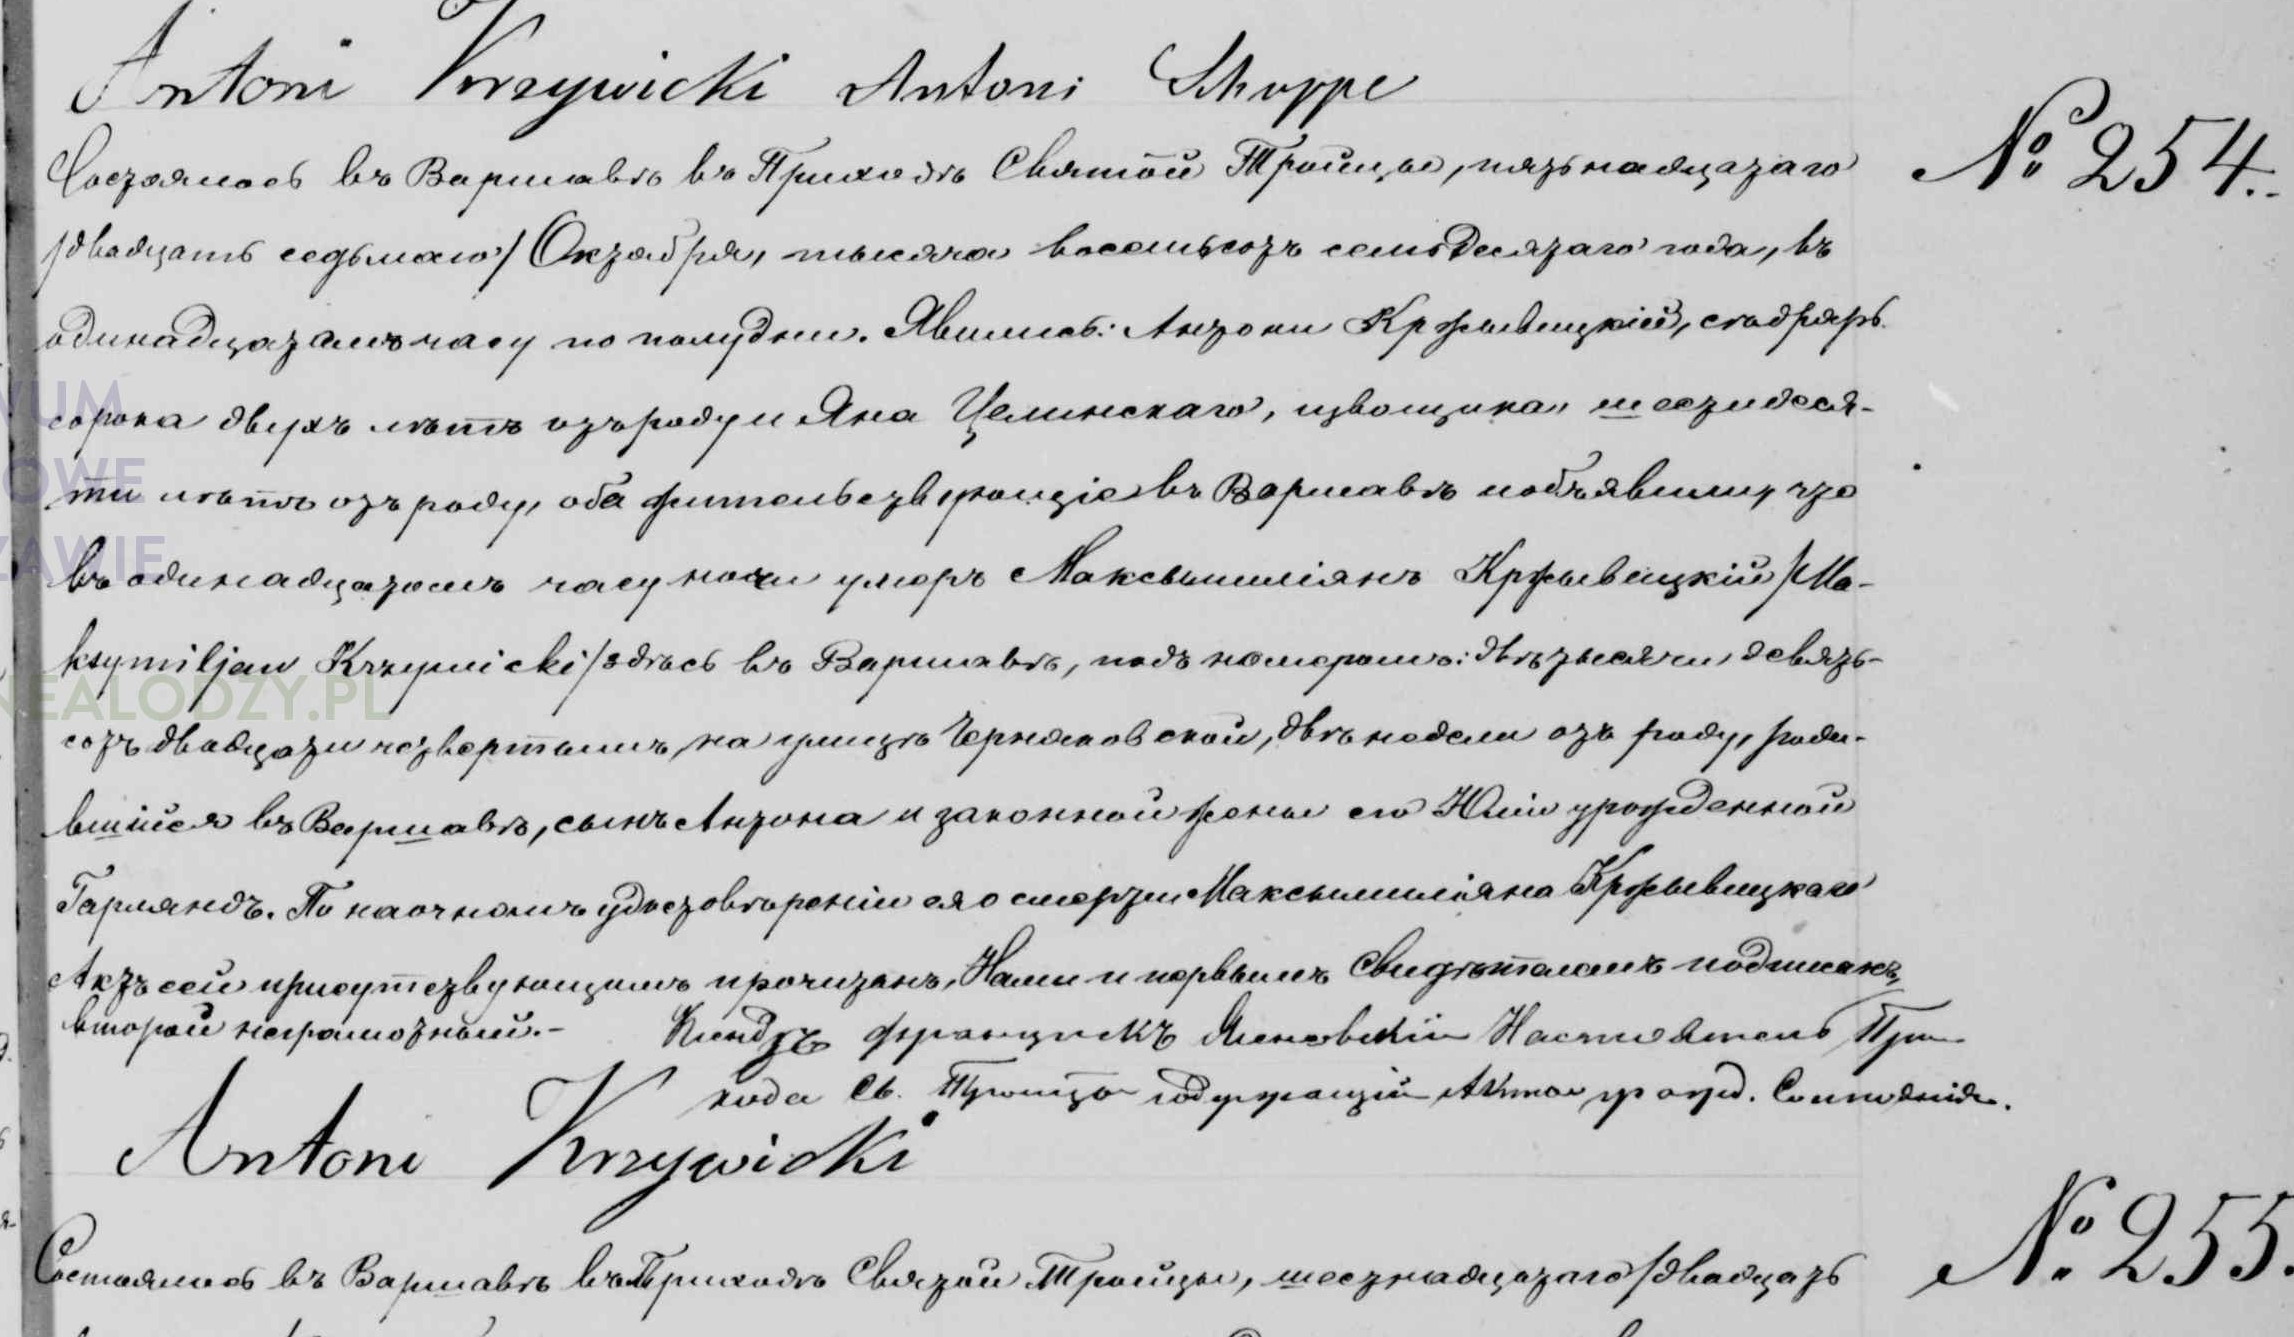 Antoni Krzywicki Antoni Schuppe
Состоялось въ Варшавѣ въ Приходѣ Святой Троицы, пятьнадцатаго № 254.
/двадцать седьмаго/ Октября, тысяча восемьсотъ семьдесятаго года, въ
одинадцатомъ часу по полудни. Явились: Антони Кржывицкій, столяръ
сорока двухъ лѣтъ отъ роду и Яна Целинскаго, извощика, шестидеся-
ти лѣтъ отъ роду, оба жительствующіе въ Варшавѣ и объявили, что
въ одинадцатомъ часу ночи умеръ Максымиліянъ Кржывицкій /Ma-
ksymiljan Krzywicki/ здѣсь въ Варшавѣ, подъ номеромъ: двѣ тысячи девять-
сотъ двадцати четвертымъ, на улицѣ Черняковской, двѣ недели отъ роду, роди-
вшійся въ Варшавѣ, сынъ Антона и законной жены его Юліи урожденной
Гарляндъ. По наочномъ удостовѣреніи ся о смерти Максымиліяна Кржывицкаго
Актъ сей присутствующимъ прочитанъ, Нами и первымъ свидѣтелемъ подписанъ,
второй неграмотный. — Ксендзъ Францискъ Настоятель При-
хода Св. Троицы содержащій Акты гражд. Состоянія.
Antoni Krzywicki
Состоялось въ Варшавѣ въ Приходѣ Святой Троицы, шестнадцатаго /двадцать № 255.
NEALODZY.PL